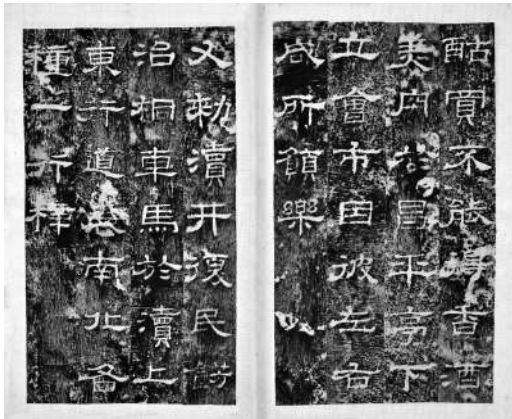 酤買不能得香酒
美肉於昌平亭下
立會市因彼左右
咸所願樂
又勑瀆井復民餝
治桐車馬於瀆上
東行道表南北各
種一行梓